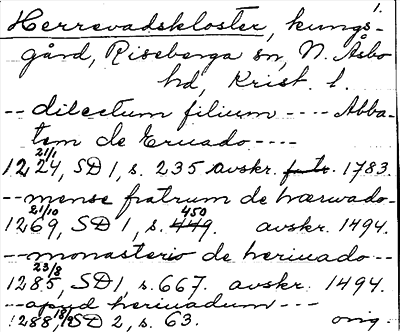 1.
Herrevadskloster, kungs-
gård, Riseberga sn, N. Åsbo
hd, Krist. l.
-- dilectum filium ---- Abba-
tem de Eruado ----
1224, 21/1 SD 1, s. 235 avskr. 1783.
-- mense fratrum de hærwado-
1269, 21/10 SD 1, s. 449. 450 avskr. 1494.
-- monasterio de heriuado --
1285, 23/8 SD 1, s. 667. avskr. 1494.
-- apud heriuadum ---
1288, SD 2, s. 63. orig.